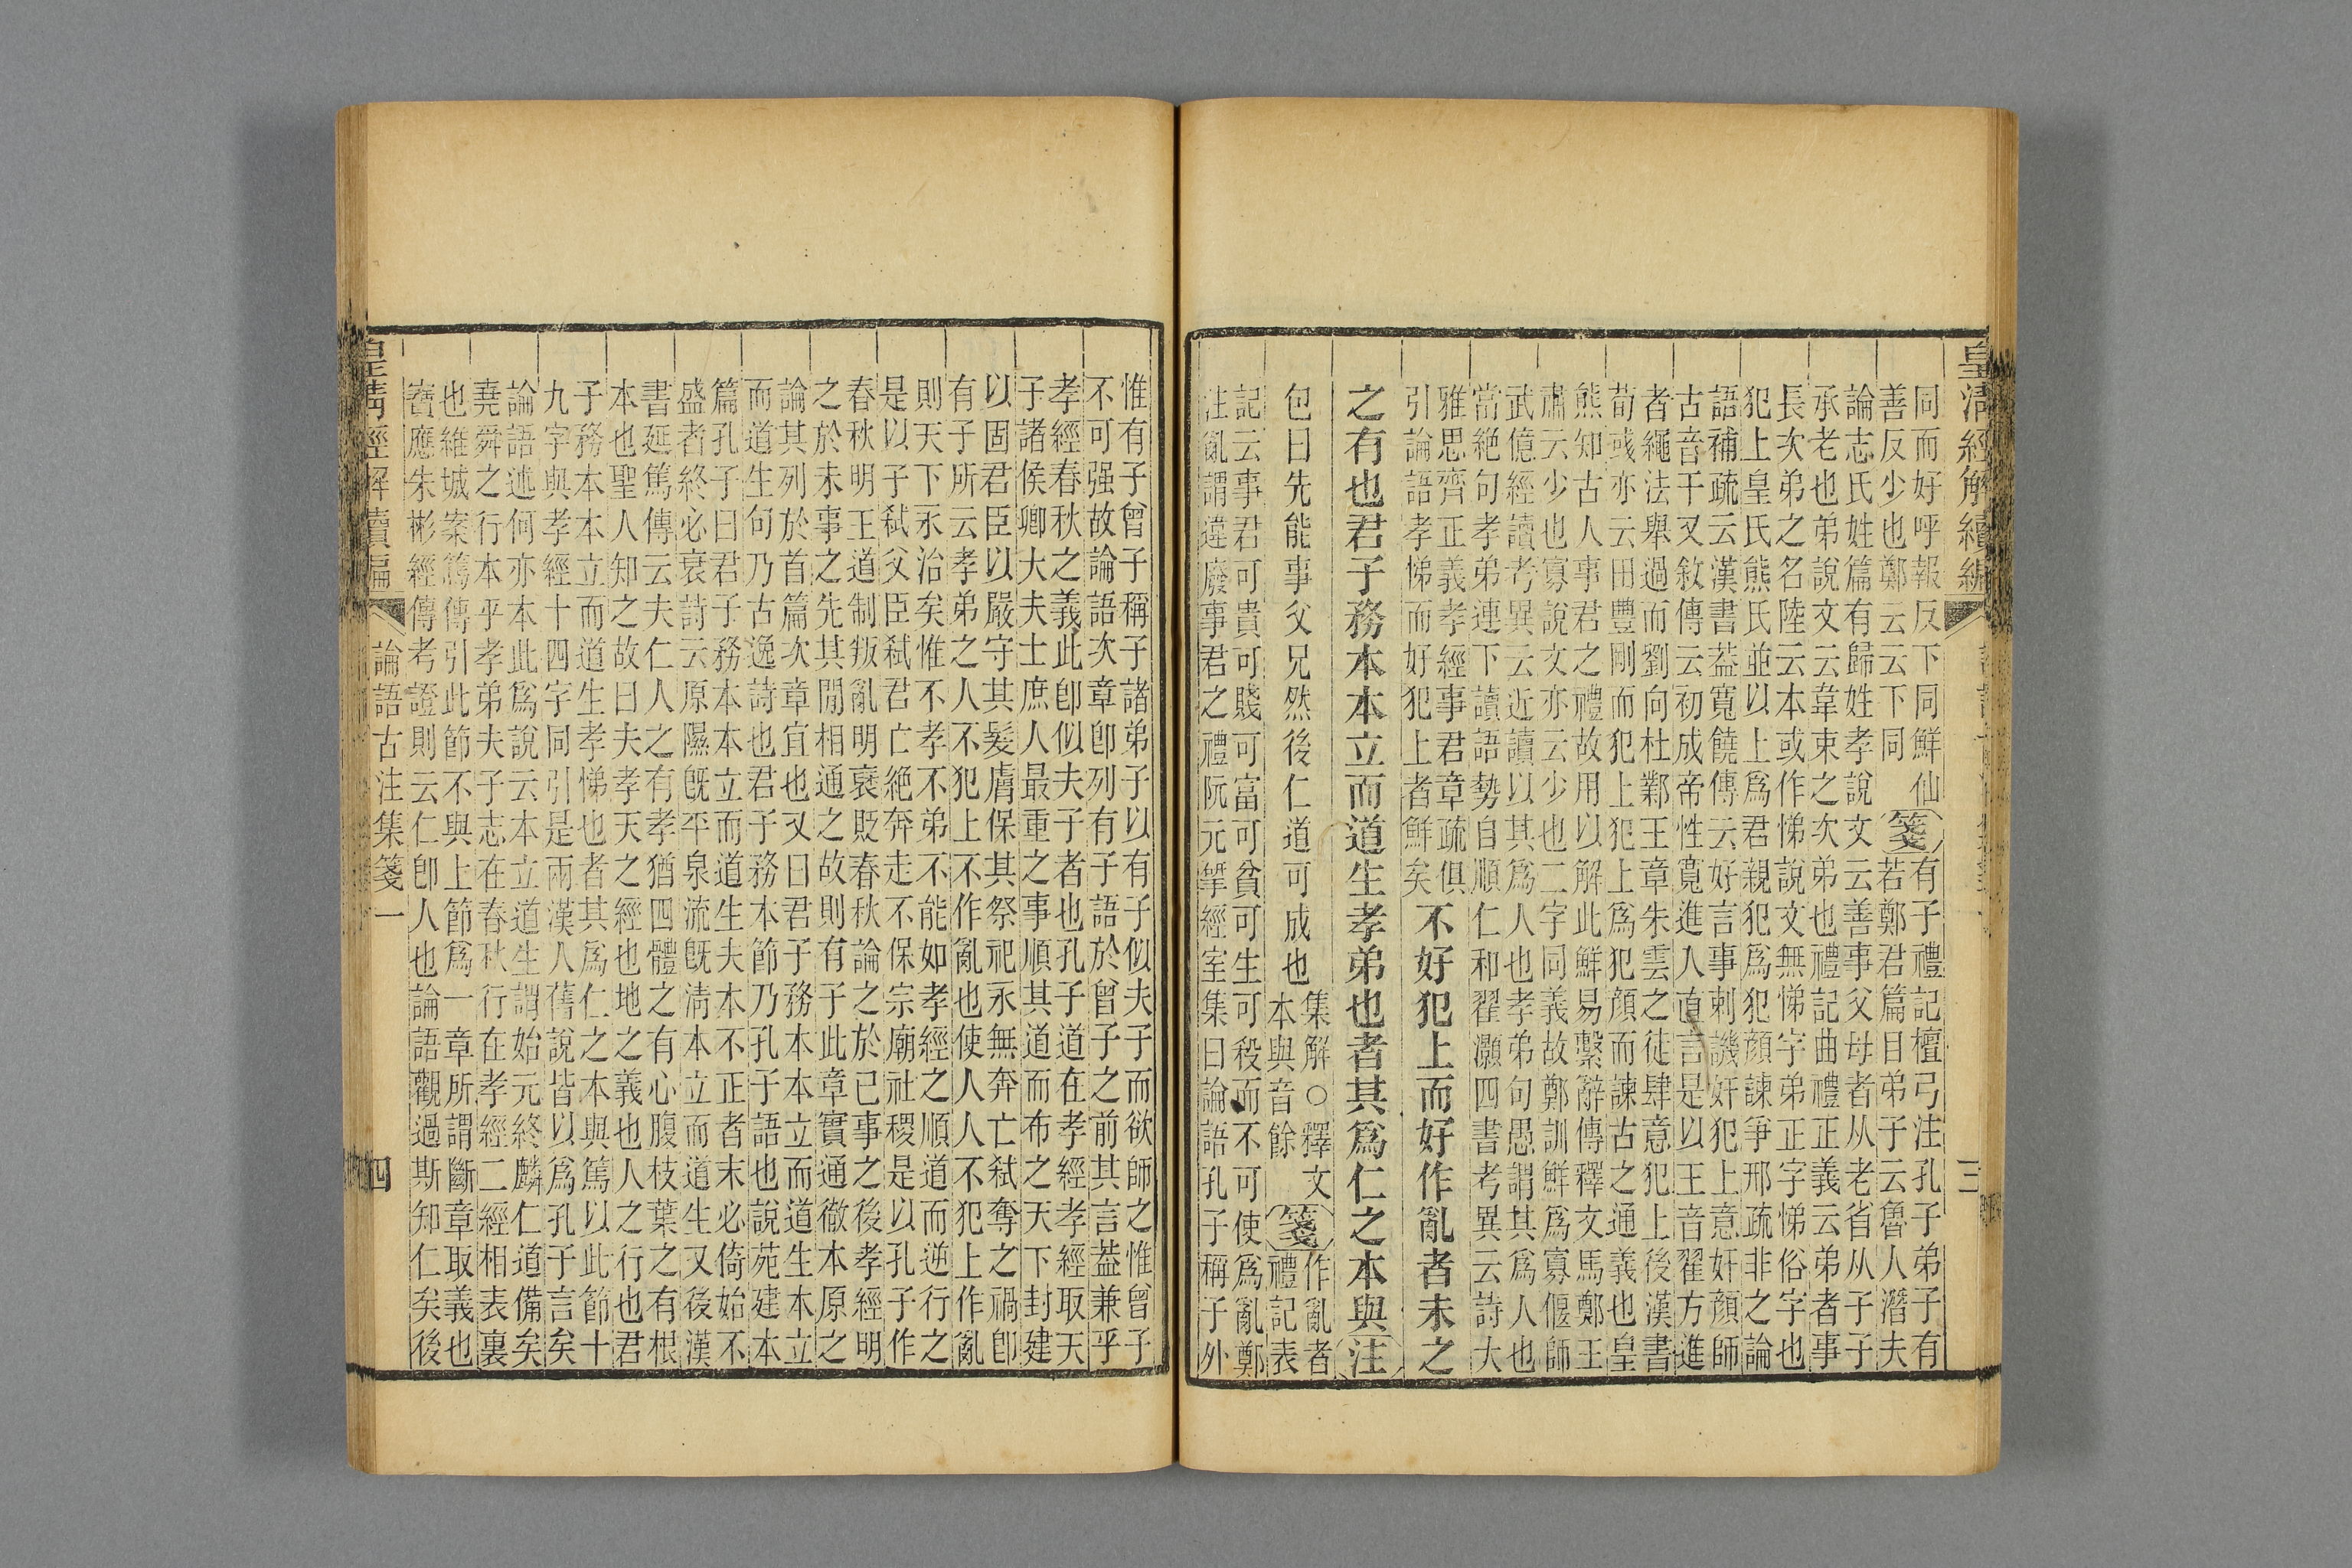 皇清經解續編
三
同而好呼報反下同鮮仙
善反少也鄭云云下同
箋
有子禮記檀弓注孔子弟子有
若鄭君篇目弟子云魯人潛夫
論志氏姓篇有歸姓孝說文云善事父母者从老省从子子
承老也弟說文云韋束之次弟也禮記曲禮正義云弟者事
長次弟之名陸云本或作悌說文無悌字弟正字悌俗字也
犯上皇氏熊氏並以上爲君親犯爲犯顔諫爭邢疏非之論
語補疏云漢書葢寬饒傳云好言事刺譏奸犯上意奸顔師
古音干又敘傳云初成帝性寬進入直言是以王音翟方進
者繩法舉過而劉向杜鄴王章朱雲之徒肆意犯上後漢書
荀彧亦云田豐剛而犯上犯上爲犯顔而諫古之通義也皇
熊知古人事君之禮故用以解此鮮易繫辭傳釋文馬鄭王
肅云少也寡說文亦云少也二字同義故鄭訓鮮爲寡偃師
武億經讀考異云近讀以其爲人也孝弟句愚謂其爲人也
當絶句孝弟連下讀語勢自順仁和翟灝四書考異云詩大
雅思齊正義孝經事君章疏俱
引論語孝悌而好犯上者鮮矣
不好犯上而好作亂者未之
之有也君子務本本立而道生孝弟也者其爲仁之本與注
包曰先能事父兄然後仁道可成也
集解○釋文
本與音餘
箋
作亂者
禮記表
記云事君可貴可賤可富可貧可生可殺而不可使爲亂鄭
注亂謂違廢事君之禮阮元揅經室集曰論語孔子稱子外
惟有子曾子稱子諸弟子以有子似夫子而欲師之惟曾子
不可强故論語次章卽列有子語於曾子之前其言葢兼乎
孝經春秋之義此卽似夫子者也孔子道在孝經孝經取天
子諸侯卿大夫士庶人最重之事順其道而布之天下封建
以固君臣以嚴守其髮膚保其祭祀永無奔亡弑奪之禍卽
有子所云孝弟之人不犯上不作亂也使人人不犯上作亂
則天下永治矣惟不孝不弟不能如孝經之順道而逆行之
是以子弑父臣弑君亡絶奔走不保宗廟社稷是以孔子作
春秋明王道制叛亂明衮貶春秋論之於已事之後孝經明
之於未事之先其閒相通之故則有子此章實通徹本原之
論其列於首篇次章宜也又曰君子務本本立而道生本立
而道生句乃古逸詩也君子務本節乃孔子語也說苑建本
篇孔子曰君子務本本立而道生夫本不正者末必倚始不
盛者終必衰詩云原隰旣平泉流旣淸本立而道生又後漢
書延篤傳云夫仁人之有孝猶四體之有心腹枝葉之有根
本也聖人知之故曰夫孝天之經也地之義也人之行也君
子務本本立而道生孝悌也者其爲仁之本與篤以此節十
九字與孝經十四字同引是兩漢人舊說皆以爲孔子言矣
論語述何亦本此爲說云本立道生謂始元終麟仁道備矣
堯舜之行本乎孝弟夫子志在春秋行在孝經二經相表裏
也維城案篤傳引此節不與上節爲一章所謂斷章取義也
寶應朱彬經傳考證則云仁卽人也論語觀過斯知仁矣後
皇清經解續編
論語古注集箋一
四